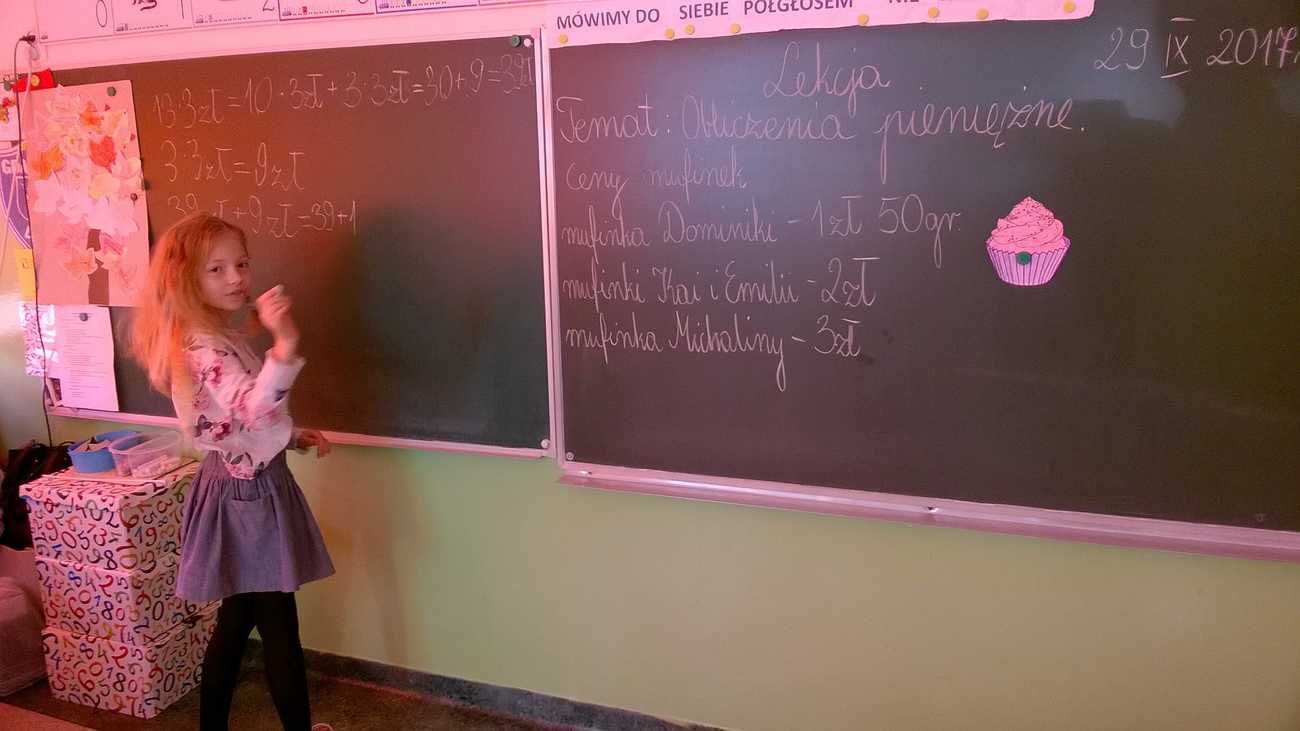 MÓWIMY DO SIEBIE PÓŁGŁOSEM
13·3zł=10·3zł+3·3zł=30+9=39zł
3·3zł=9zł
39zł+9zł=39+1
29 IX 2017r.
Lekcja
Temat: Obliczenia pieniężne.
ceny mufinek
mufinka Dominiki - 1zł 50gr.
mufinki Kai i Emilii - 2zł
mufinka Michaliny - 3zł